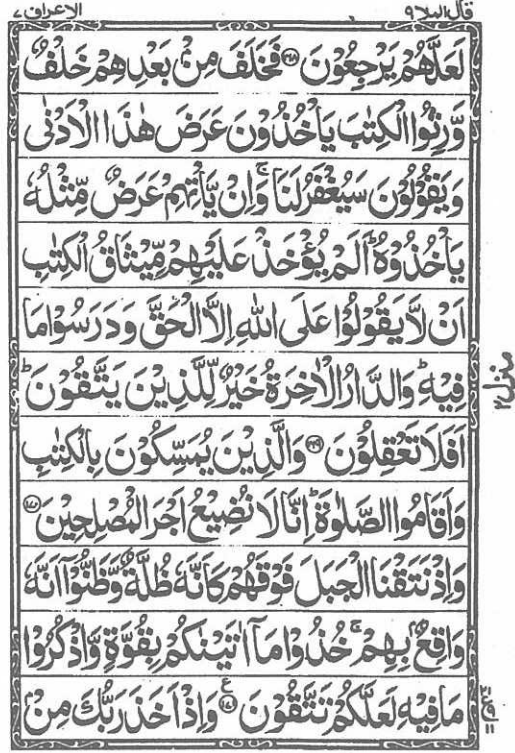 قال الملا ٩
الاعراف ٧
لَعَلَّهُمْ يَرْجِعُوْنَ ۝۱۶۸ فَخَلَفَ مِنْۢ بَعْدِهِمْ خَلْفٌ
وَّرِثُوا الْكِتٰبَ يَاْخُذُوْنَ عَرَضَ هٰذَا الْاَدْنٰى
وَيَقُوْلُوْنَ سَيُغْفَرُ لَنَا ۚ وَاِنْ يَّاْتِهِمْ عَرَضٌ مِّثْلُهٗ
يَاْخُذُوْهُ ؕ اَلَمْ يُؤْخَذْ عَلَيْهِمْ مِّيْثَاقُ الْكِتٰبِ
اَنْ لَّا يَقُوْلُوْا عَلَى اللّٰهِ اِلَّا الْحَقَّ وَدَرَسُوْا مَا
فِيْهِ ؕ وَالدَّارُ الْاٰخِرَةُ خَيْرٌ لِّلَّذِيْنَ يَتَّقُوْنَ ؕ
اَفَلَا تَعْقِلُوْنَ ۝۱۶۹ وَالَّذِيْنَ يُمَسِّكُوْنَ بِالْكِتٰبِ
وَاَقَامُوا الصَّلٰوةَ ؕ اِنَّا لَا نُضِيْعُ اَجْرَ الْمُصْلِحِيْنَ ۝۱۷۰
وَاِذْ نَتَقْنَا الْجَبَلَ فَوْقَهُمْ كَاَنَّهٗ ظُلَّةٌ وَّظَنُّوْۤا اَنَّهٗ
وَاقِعٌۢ بِهِمْ ۚ خُذُوْا مَاۤ اٰتَيْنٰكُمْ بِقُوَّةٍ وَّاذْكُرُوْا
مَا فِيْهِ لَعَلَّكُمْ تَتَّقُوْنَ ۝۱۷۱ ع وَاِذْ اَخَذَ رَبُّكَ مِنْۢ
منزل ۲